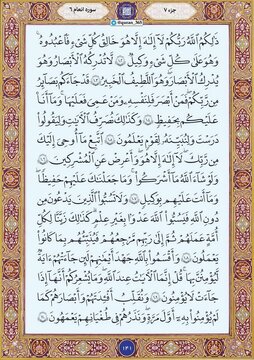 جزء ۷
@quran_365
سوره انعام ٦
ذَٰلِكُمُ ٱللَّهُ رَبُّكُمْ لَآ إِلَٰهَ إِلَّا هُوَ خَٰلِقُ كُلِّ شَىْءٍ فَٱعْبُدُوهُ
وَهُوَ عَلَىٰ كُلِّ شَىْءٍ وَكِيلٌ ١٠٢ لَّا تُدْرِكُهُ ٱلْأَبْصَٰرُ وَهُوَ
يُدْرِكُ ٱلْأَبْصَٰرَ وَهُوَ ٱللَّطِيفُ ٱلْخَبِيرُ ١٠٣ قَدْ جَآءَكُم بَصَآئِرُ
مِن رَّبِّكُمْ فَمَنْ أَبْصَرَ فَلِنَفْسِهِۦ وَمَنْ عَمِىَ فَعَلَيْهَا وَمَآ أَنَا۠
عَلَيْكُم بِحَفِيظٍ ١٠٤ وَكَذَٰلِكَ نُصَرِّفُ ٱلْءَايَٰتِ وَلِيَقُولُوا۟
دَرَسْتَ وَلِنُبَيِّنَهُۥ لِقَوْمٍ يَعْلَمُونَ ١٠٥ ٱتَّبِعْ مَآ أُوحِىَ إِلَيْكَ
مِن رَّبِّكَ لَآ إِلَٰهَ إِلَّا هُوَ وَأَعْرِضْ عَنِ ٱلْمُشْرِكِينَ ١٠٦
وَلَوْ شَآءَ ٱللَّهُ مَآ أَشْرَكُوا۟ وَمَا جَعَلْنَٰكَ عَلَيْهِمْ حَفِيظًا
وَمَآ أَنتَ عَلَيْهِم بِوَكِيلٍ ١٠٧ وَلَا تَسُبُّوا۟ ٱلَّذِينَ يَدْعُونَ مِن
دُونِ ٱللَّهِ فَيَسُبُّوا۟ ٱللَّهَ عَدْوًۢا بِغَيْرِ عِلْمٍ كَذَٰلِكَ زَيَّنَّا لِكُلِّ
أُمَّةٍ عَمَلَهُمْ ثُمَّ إِلَىٰ رَبِّهِم مَّرْجِعُهُمْ فَيُنَبِّئُهُم بِمَا كَانُوا۟
يَعْمَلُونَ ١٠٨ وَأَقْسَمُوا۟ بِٱللَّهِ جَهْدَ أَيْمَٰنِهِمْ لَئِن جَآءَتْهُمْ ءَايَةٌ
لَّيُؤْمِنُنَّ بِهَا قُلْ إِنَّمَا ٱلْءَايَٰتُ عِندَ ٱللَّهِ وَمَا يُشْعِرُكُمْ أَنَّهَآ إِذَا
جَآءَتْ لَا يُؤْمِنُونَ ١٠٩ وَنُقَلِّبُ أَفْـِٔدَتَهُمْ وَأَبْصَٰرَهُمْ كَمَا
لَمْ يُؤْمِنُوا۟ بِهِۦٓ أَوَّلَ مَرَّةٍ وَنَذَرُهُمْ فِى طُغْيَٰنِهِمْ يَعْمَهُونَ ١١٠
١٤١